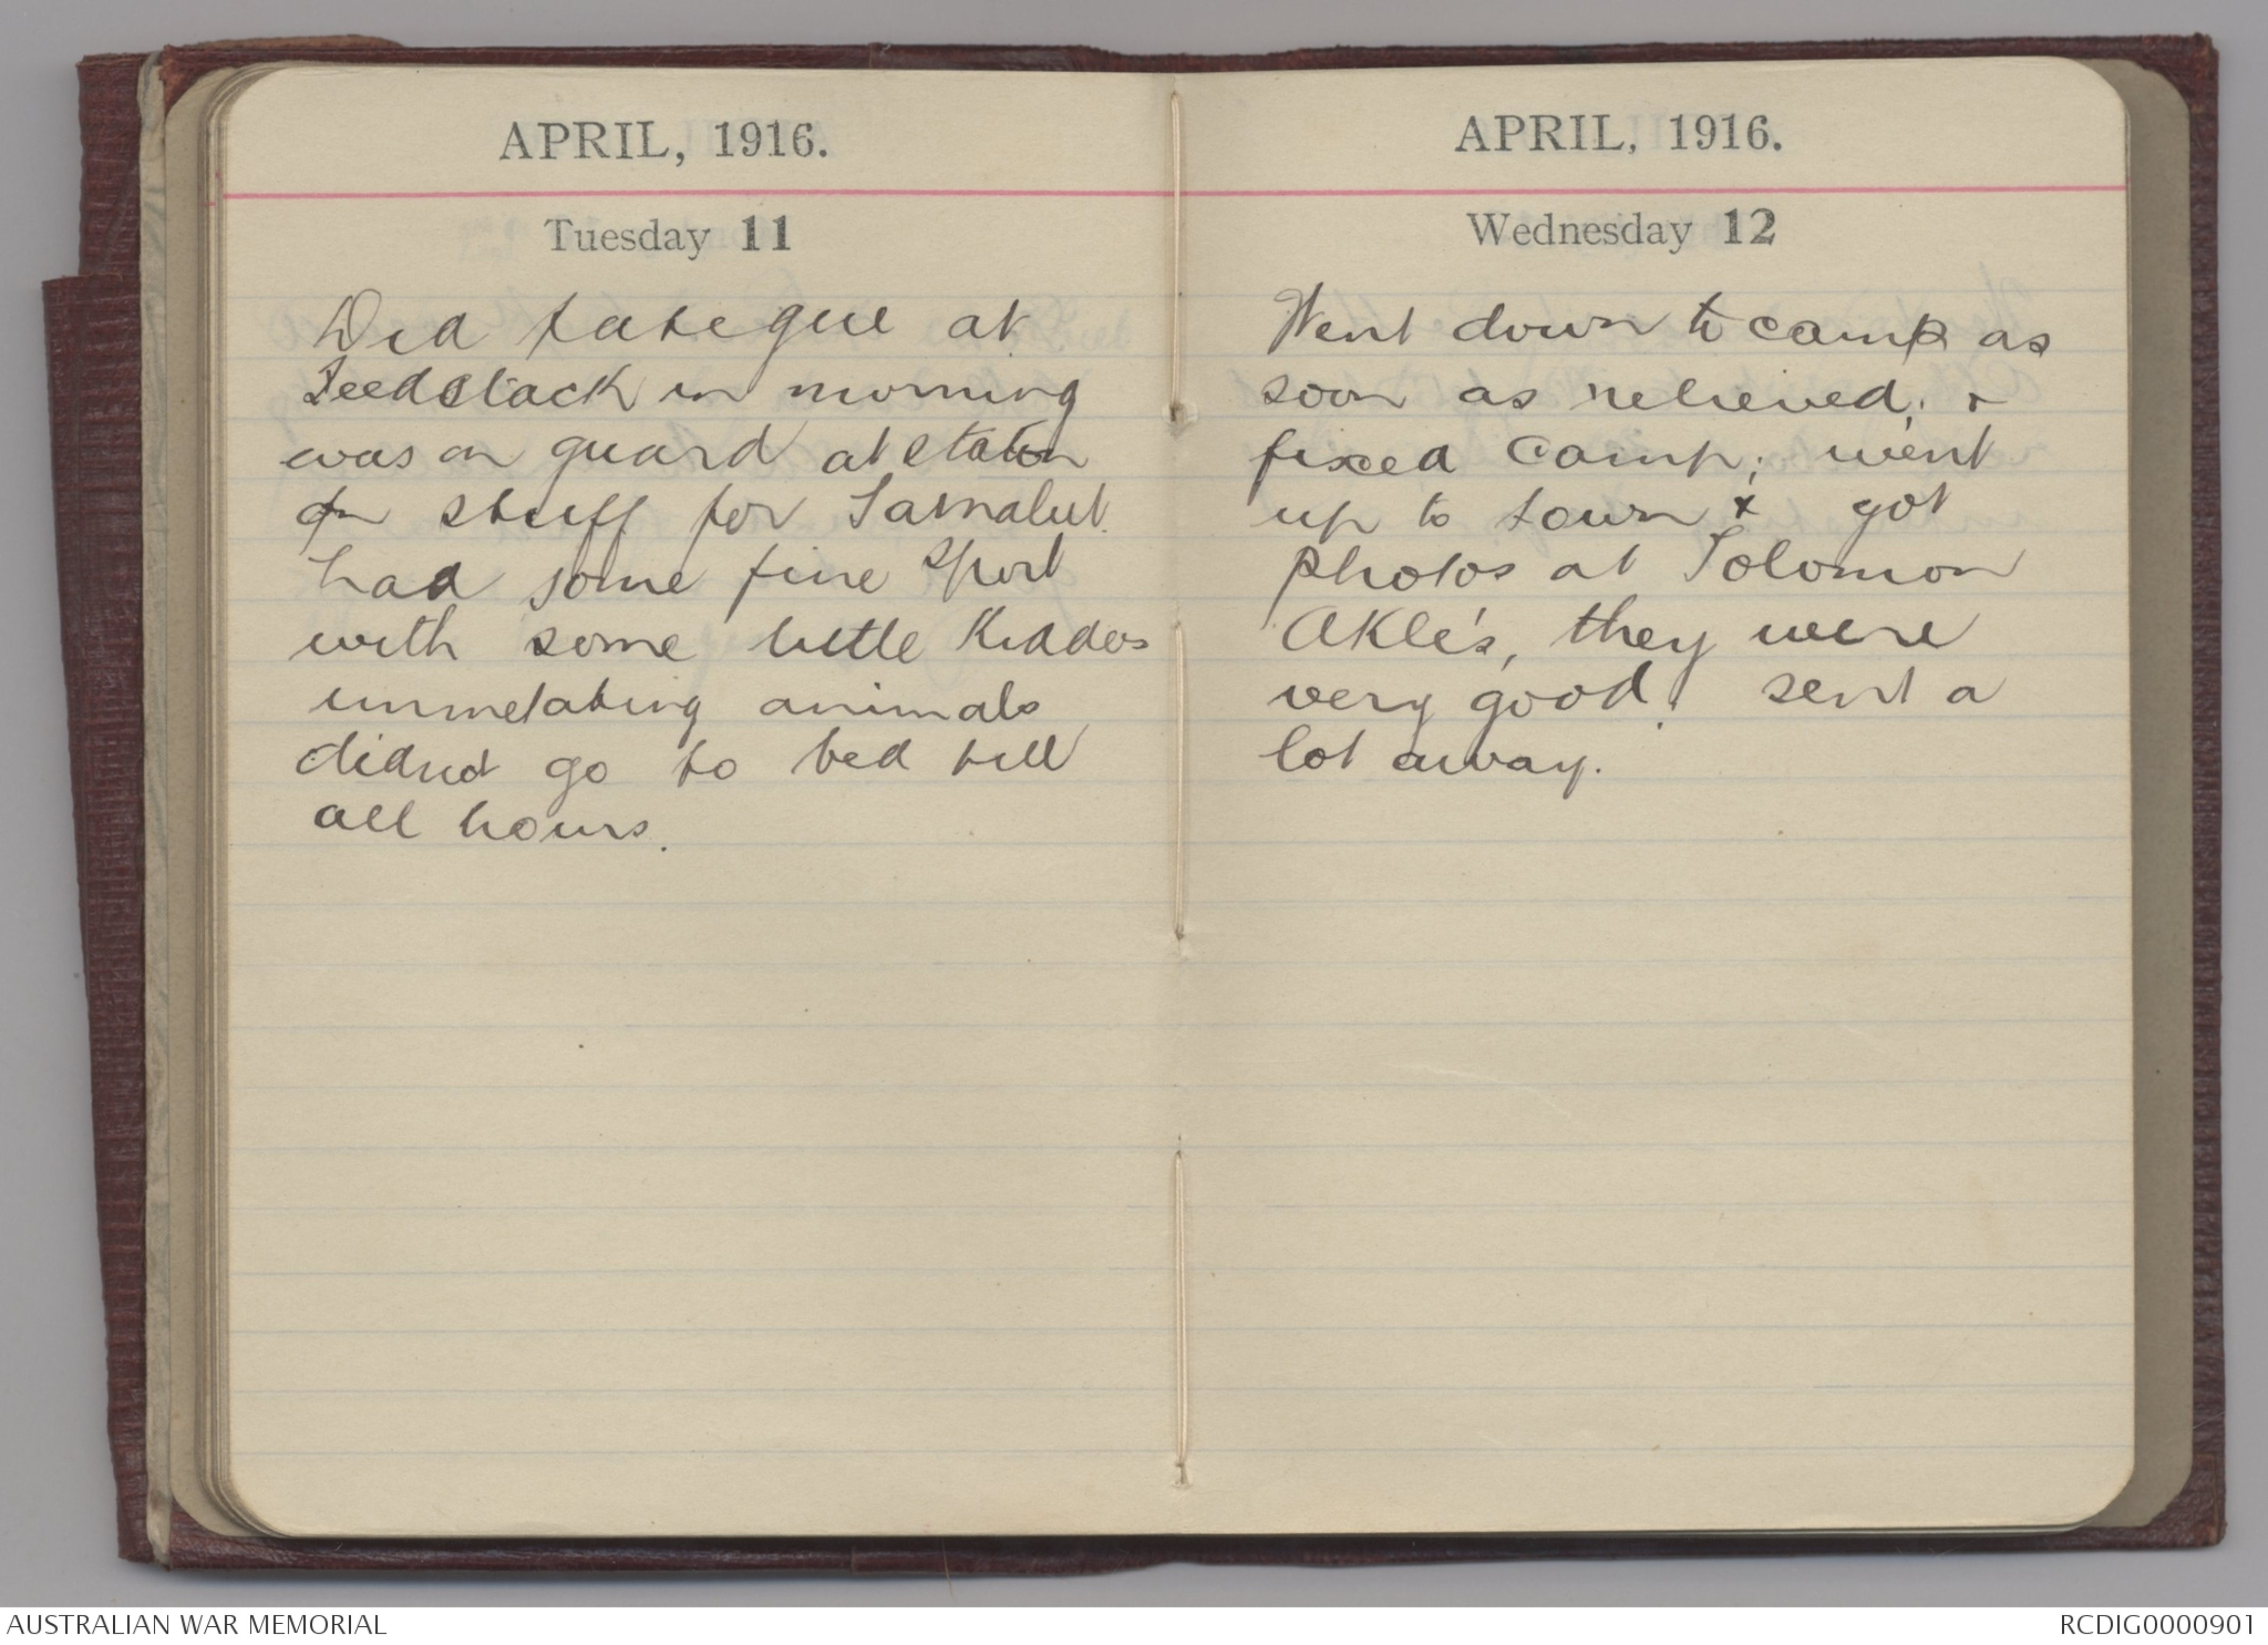 APRIL, 1916.
Tuesday 11
Did fatigue at
Feedstack in morning
was on guard at station
on stuff for Samalut.
had some fine sport
with some little Kiddos
immetating animals
didnt go to bed till
all hours.
APRIL, 1916.
Wednesday 12
Went down to camp as
soon as relieved, &
fixed camp; went
up to town & got
photos at Solomon
Akle's, they were
very good. sent a
lot away.
AUSTRALIAN WAR MEMORIAL
RCDIG0000901